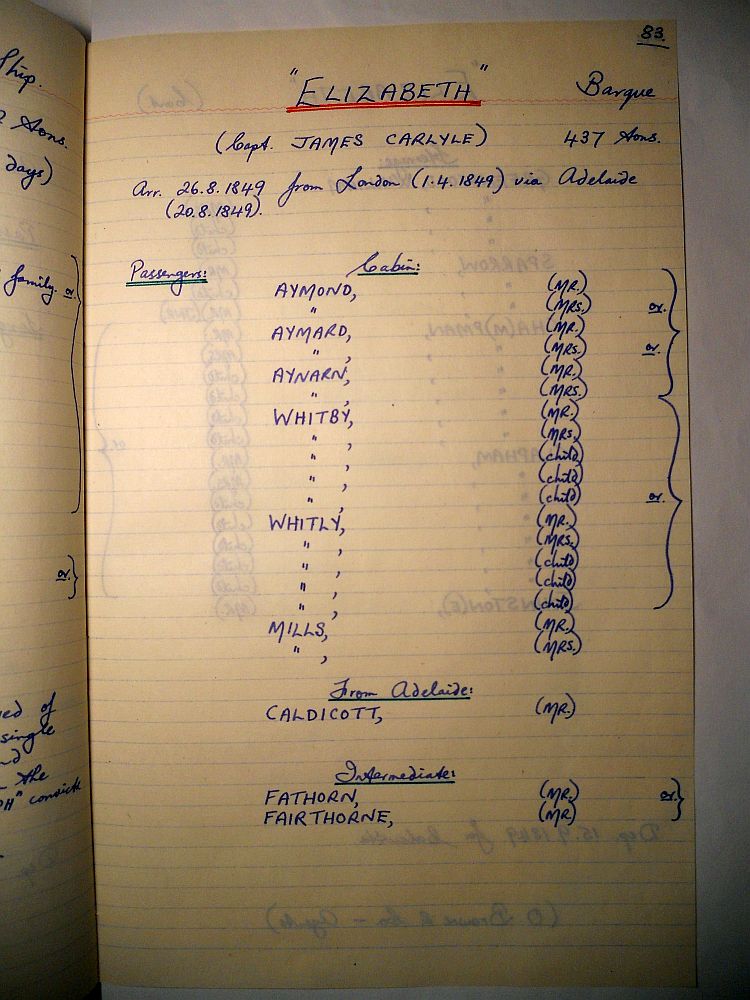 83.
"ELIZABETH" Barque
(Capt. JAMES CARLYLE) 437 Tons.
Arr. 26.8.1849 from London (1.4.1849) via Adelaide
(20.8.1849).
Passengers: Cabin:
AYMOND, (MR.)
" , (MRS.) or.
AYMARD, (MR.)
" , (MRS.) or.
AYNARN, (MR.)
" , (MRS.)
WHITBY, (MR.)
" , (MRS.)
" , (child)
" , (child)
" , (child) or.
WHITLY, (MR.)
" , (MRS.)
" , (child)
" , (child)
" , (child)
MILLS, (MR.)
" , (MRS.)
From Adelaide:
CALDICOTT, (MR.)
Intermediate:
FATHORN, (MR.) or.
FAIRTHORNE, (MR)
Ship.
Tons.
days)
family. or.
or.
ed of
single
nd
the
OH" convict